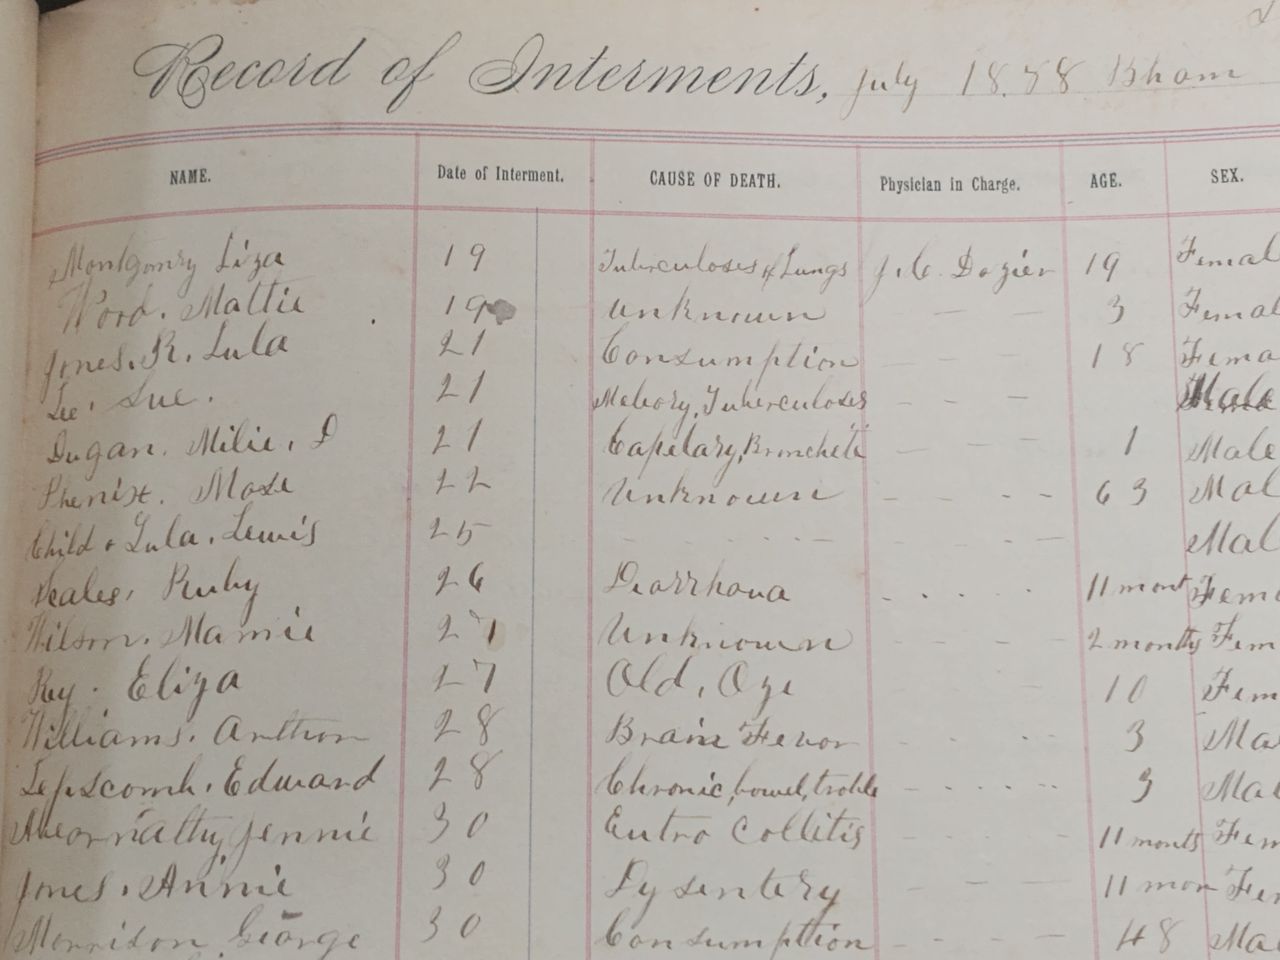 Record of Interments, July 18.88 Bham
NAME. Date of Interment. CAUSE OF DEATH. Physician in Charge. AGE. SEX.
Montgomry Liza 19 Tuberculoses of Lungs J. C. Dozier 19 Femal
Word. Mattie 19 Unknown — — — 3 Femal
Jones. R. Lula 21 Consumption — — — 18 Fema
Lee. Sue. 21 Tuberculoses — — — Male
Dugan. Milie. D 21 Capelary, Bronchete — — — 1 Male
Phenix. Mose 22 Unknown - - - - 63 Mal
Child of Lula. Lewis 25 - - - - - - - - - Mal
Veales, Ruby 26 Diarrhoua - - - - - 11 mont Fema
Wilson. Mamie 27 Unknown - - - - 2 months Fem
Key. Eliza 27 Old, Age - - - 10 Fem
Williams. Arthor 28 Brain Fevor - - - - 3 Ma
Lepscomb. Edward 28 Chronic, bowel, troble - - - - - 3 Mal
Jennie 30 Entro Collitis - - - - 11 months Fem
Jones. Annie 30 Dysentery - - - 11 mon Fem
Morrison George 30 Consumption - - - - 48 Mal